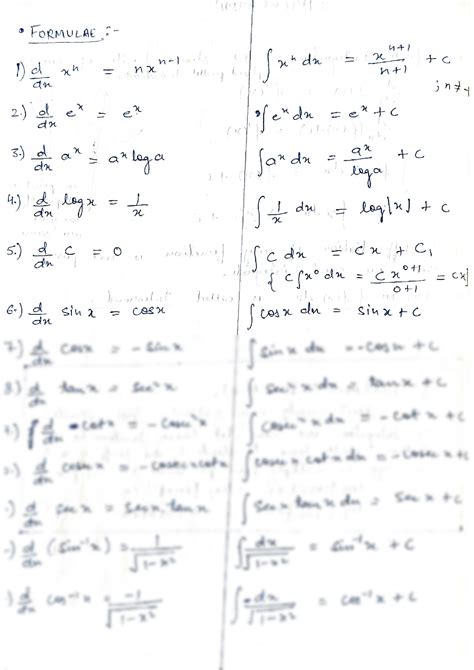 • FORMULAE :-
1) d/dx xⁿ = nxⁿ⁻¹ ∫ xⁿ dx = xⁿ⁺¹/n+1 + c ; n ≠ -1
2.) d/dx eˣ = eˣ ∫ eˣ dx = eˣ + c
3.) d/dx aˣ = aˣ log a ∫ aˣ dx = aˣ/log a + c
4.) d/dx log x = 1/x ∫ 1/x dx = log|x| + c
5.) d/dx c = 0 ∫ c dx = cx + c₁
{ c∫x⁰ dx = c x⁰⁺¹/0+1 = cx }
6.) d/dx sin x = cos x ∫ cos x dx = sin x + c
7.) d/dx cos x = - sin x ∫ sin x dx = - cos x + c
8) d/dx tan x = sec² x ∫ sec² x dx = tan x + c
) d/dx cot x = - cosec² x ∫ cosec² x dx = - cot x + c
.) d/dx cosec x = - cosec x cot x ∫ cosec x cot x dx = - cosec x + c
.) d/dx sec x = sec x . tan x ∫ sec x tan x dx = sec x + c
.) d/dx (sin⁻¹ x) = 1/√1-x² ∫ dx/√1-x² = sin⁻¹ x + c
.) d/dx cos⁻¹ x = -1/√1-x² ∫ - dx/√1-x² = cos⁻¹ x + c